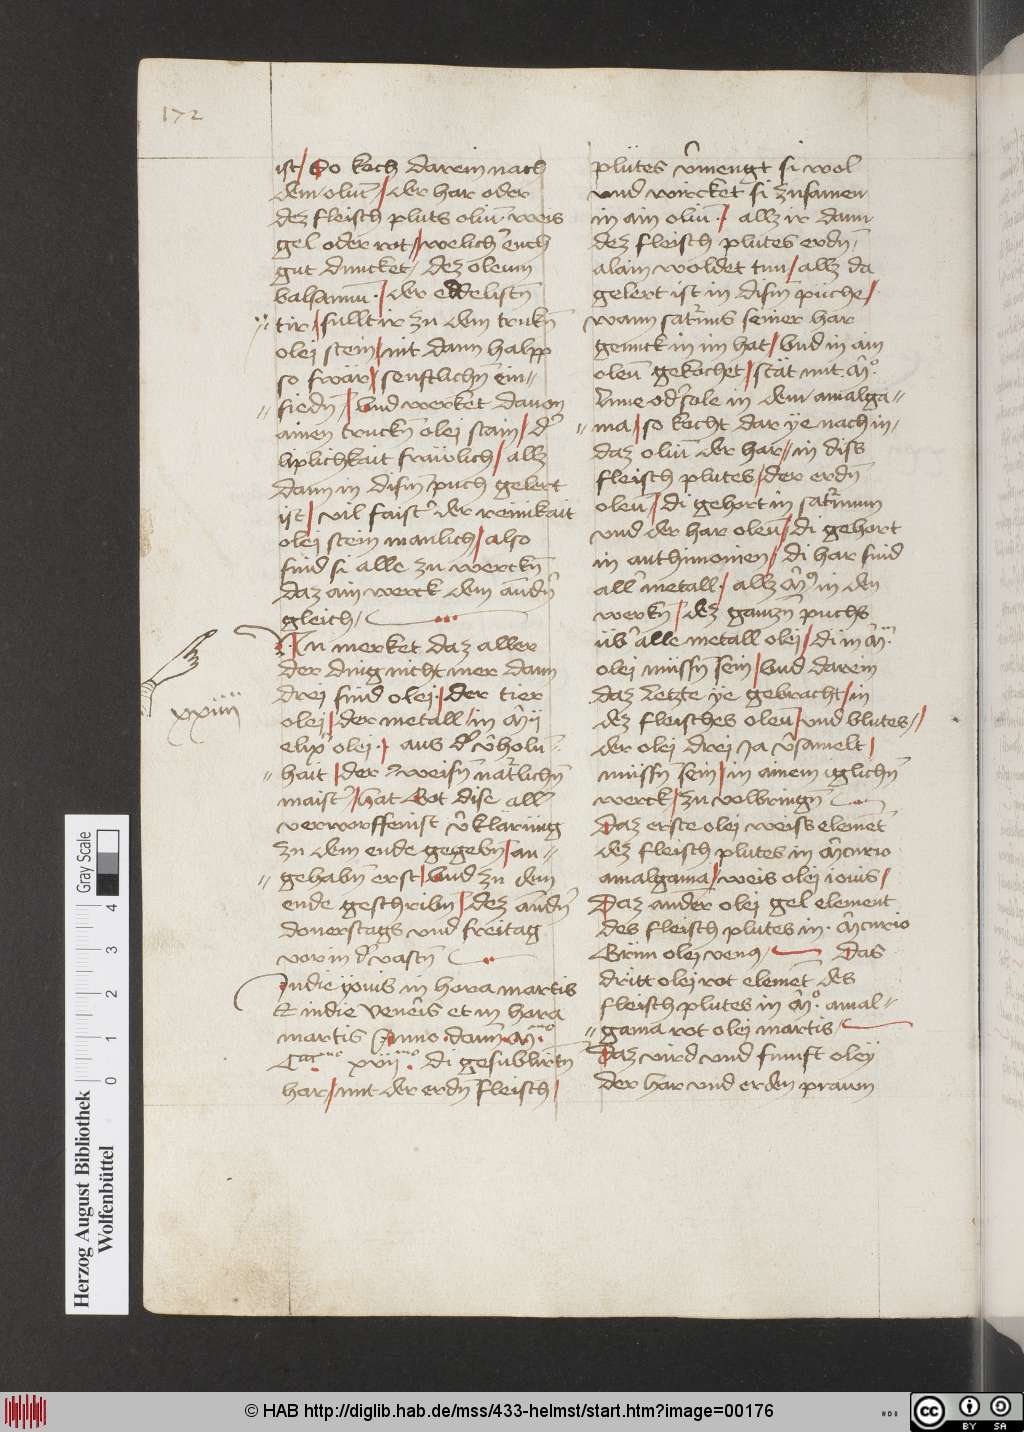 172
ist / So koch darein nach
dem oliū / der har oder
dez fleisch pluts oliū · weis
gel oder rot / welich euch
gut duncket / dez oleum
balsamū · / der eddelistn̄
tir / fullt ir zu dem trukn̄
olei stein / nit dann halpp
so swär / senftlichn̄ ein=
siedn̄ / Und werket davon
ainen truckn̄ olei stain / d'
liplichkait fraisslich / allz
dann in dism̄ puch gelert
ist / vil faist' der reinikait
olei stein manlich / also
sind si alle zu werckn̄
daz ain werck dem andn̄
gleich /
Nu merket daz aller
der ding nicht mer dann
drei sind olei · / der tier
xxiiii
olei / der metall / in
elix' olei · / aus d' v'holn̄=
hait / der weisn̄ natr̄lichn̄
maist' / hat Got dise all'
verworffenist v'klärung
zu dem ende gegebn̄ / an=
gehabn̄ erst / Und zu dem
ende geschribn̄ / dez andn̄
donerstags und freitag
vor in d' vastn̄
In die iovis in hora martis
& in die veneris et in hora
martis Anno domī M̄mo
CCCCmo xvii mo · di gesublirtn̄
har / mit der erdn̄ fleisch /
plutes v'mengt si wol
und wircket si zusamen
in ain oliū · / allz ir dann
dez fleisch plutes erdn̄ /
alain woldet tun / allz da
gelert ist in dism̄ püche /
wann sat'nus seiner har
genuck in im hat / Und in ain
oleū gekochet / stät mit
lune od' sole in dem / amalga=
ma / so kocht dar ye nach in /
daz oliū der har // in diss
fleisch plutes / der erdn̄
oleū / di gehort in sat'num
und der har oleū / di gehort
in anthimonien / di har sind
all' metall · / allz in den
werkn̄ / dez gannzn̄ puchs
üb' alle metall olei / di in
olei müssn̄ sein / Und darein
daz letzte ye gebracht / in
dez fleisches oleū / und blutes /
der olei drei ja v'samelt /
müssn̄ sein / in ainem iglichn̄
werck / zu volbringn̄
Daz erste olei weiss elemēt
dez fleisch plutes in m̄curio
amalgama / weis olei iovis /
Daz ander olei gel element
des fleisch plutes in · m̄curio
Grün olei ven9 / Das
dritt olei rot elemēt des
fleisch plutes in amal=
gama rot olei martis /
Daz vird und funft oley
der har und erden prawn
Herzog August Bibliothek
Wolfenbüttel
Gray Scale
0 1 2 3 4
© HAB http://diglib.hab.de/mss/433-helmst/start.htm?image=00176
cc BY SA